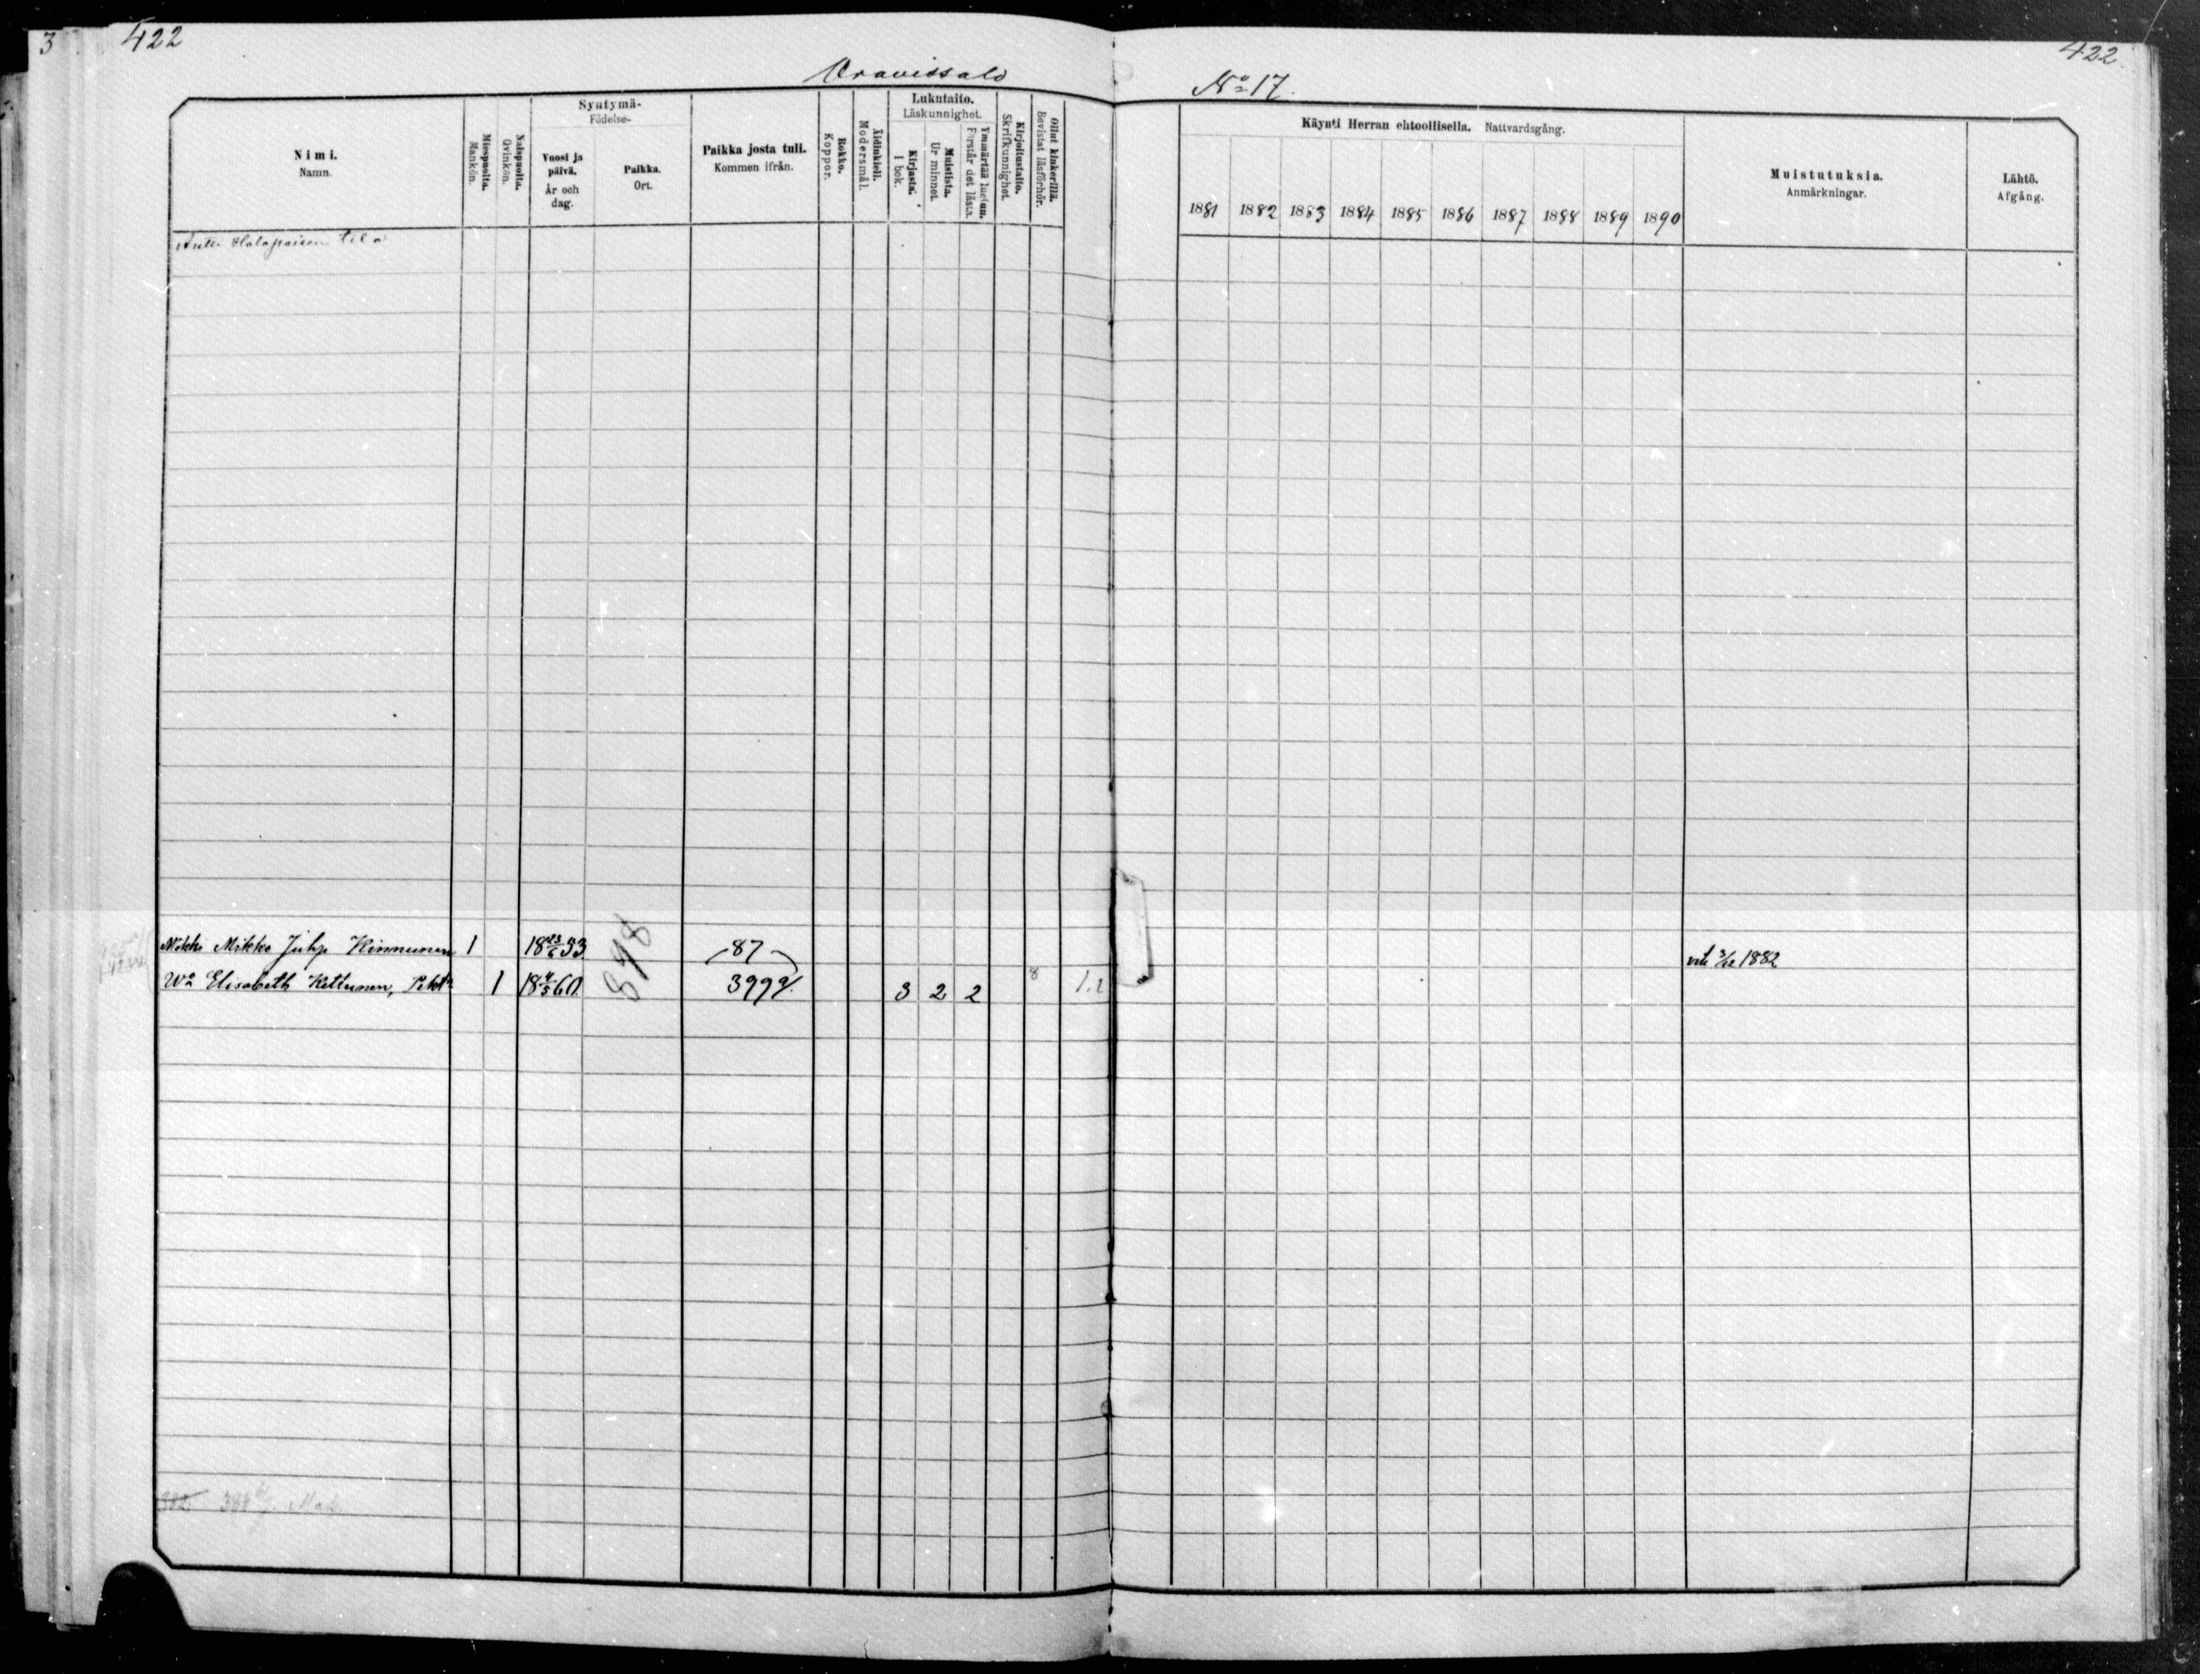 3 422
Oravissalo
Nimi.
Namn.
Miespuolta.
Mankön.
Naispuolta.
Qvinkön.
Syntymä-
Födelse-
Vuosi ja päivä.
År och dag.
Paikka.
Ort.
Paikka josta tuli.
Kommen ifrån.
Rokko.
Koppor.
Äidinkieli.
Modersmål.
Lukutaito.
Läskunnighet.
Kirjasta.
I bok.
Muistista.
Ur minnet.
Ymmärtää luetun.
Förstår det lästa.
Kirjoitustaito.
Skrifkunnighet.
Ollut kinkerillä.
Bevistat läsförhör.
Antti Halapaisen tila
Mökki Mikko Juhp Kinnunen 1 18 23/6 33 87
Wo Elisabeth Kettunen, Pekt 1 18 4/5 60. 399 3 2 2 8 1.2
898
382. 384
422.
No 17.
Käynti Herran ehtoollisella. Nattvardsgång.
1881 1882 1883 1884 1885 1886 1887 1888 1889 1890
Muistutuksia.
Anmärkningar.
Lähtö.
Afgång.
vih 3/12 1882